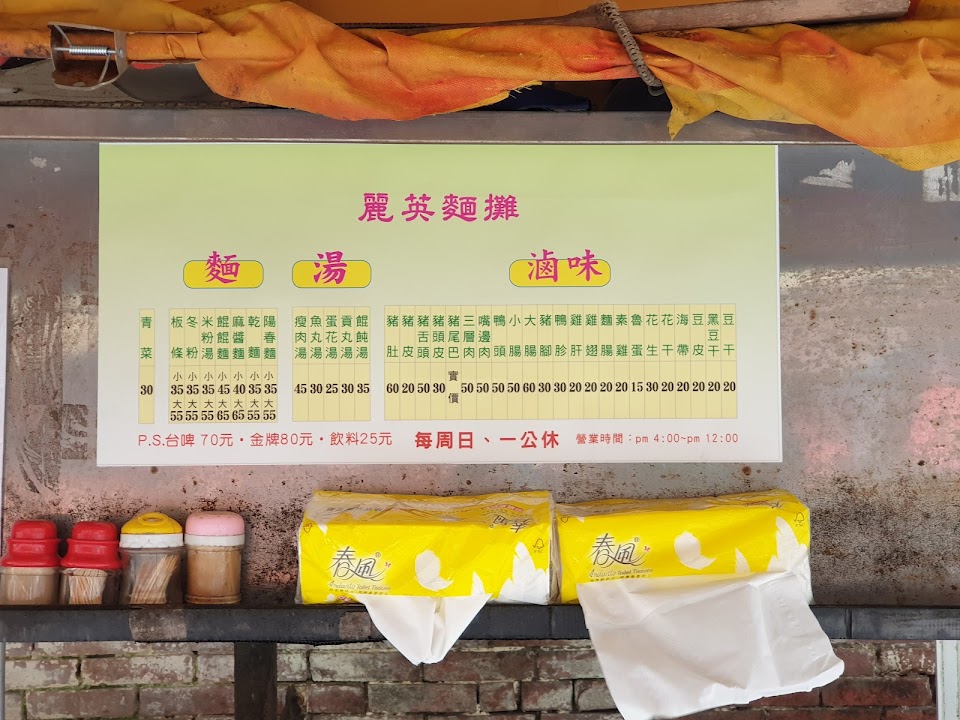 麗英麵攤
麵
湯
滷味
青菜 30
板條 小35 大55
冬粉 小35 大55
米粉湯 小35 大55
餛餛麵 小45 大65
麻醬麵 小40 大65
乾麵 小35 大55
陽春麵 小35 大55
瘦肉湯 45
魚丸湯 30
蛋花湯 25
貢丸湯 30
餛飩湯 35
豬肚 60
豬皮 20
豬舌頭 50
豬頭皮 30
豬尾巴 實價
三層肉 50
嘴邊肉 50
鴨頭 50
小腸 50
大腸 60
豬腳 30
鴨胗 30
雞肝 20
雞翅 20
麵腸 20
素雞 20
魯蛋 15
花生 30
花干 20
海帶 20
豆皮 20
黑豆干 20
豆干 20
P.S.台啤 70元・金牌80元・飲料25元 每周日、一公休 營業時間：pm 4:00~pm 12:00
春風
春風